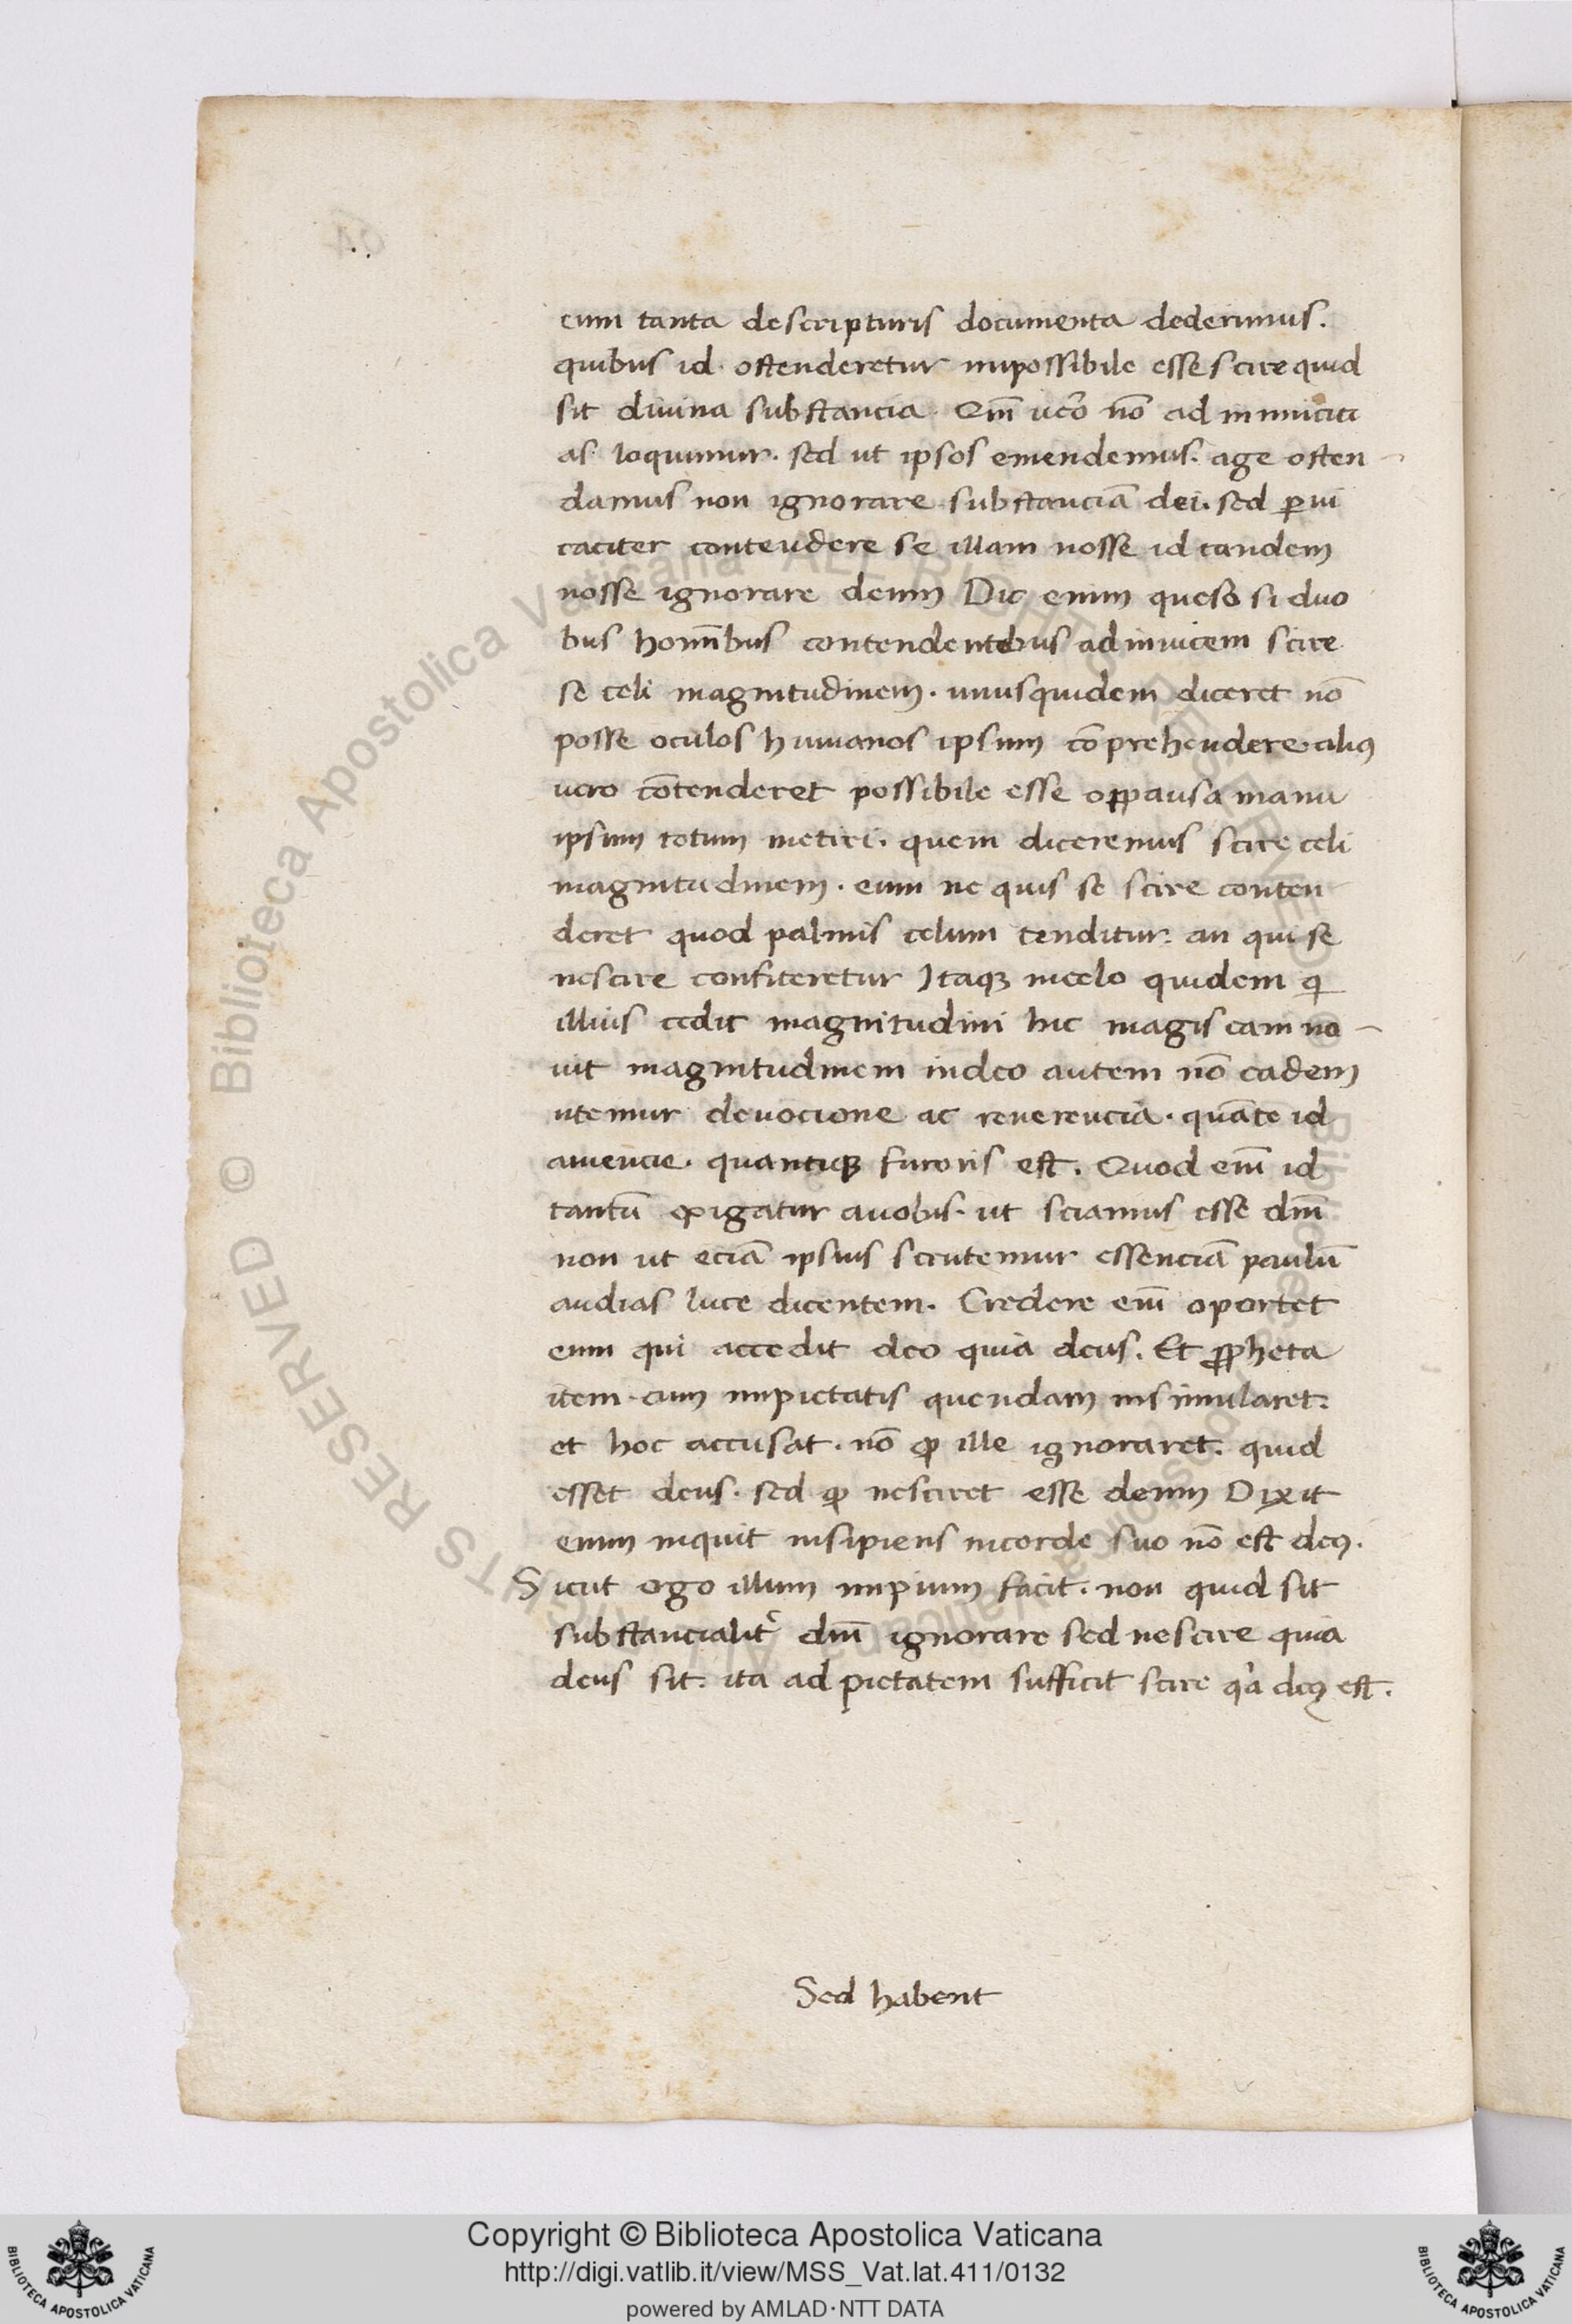 cum tanta de scripturis documenta dederimus.
quibus id. ostenderetur impossibile esse scire quid
sit divina substancia. Qm̄ uero nō ad inimicici
as loquimur. sed ut ipsos emendemus. age osten
damus non ignorare substanciā dei. sed ꝑui
caciter contendere se illam nosse id tandem
nosse ignorare deum Dic enim queso si duo
bus homībus contendentibus adinuicem scire
se celi magnitudinem. unusquidem diceret nō
posse oculos humanos ipsum cōprehendere. aliꝯ
uero cōtenderet possibile esse oppansa manu
ipsum totum metiri. quem diceremus scire celi
magnitudinem. eum ne quis se scire conten
deret quod palmis celum tenditur. an qui se
nescire confiteretur Itaqꝫ incelo quidem q̄
illius cedit magnitudini hic magis eam no
uit magnitudinem indeo autem nō eadem
utemur deuocione ac reuerencia. quāte id
amencie. quantiqꝫ furoris est. Quod em̄ id
tantū exigatur auobis. ut sciamus esse dm̄
non ut eciā ipsius scrutemur essenciā paulū
audias luce dicentem. Credere em̄ oportet
eum qui accedit deo quia deus. Et ꝓpheta
item. cum impietatis quendam insimularet.
et hoc accusat. nō ꝙ ille ignoraret. quid
esset deus. sed ꝙ nesciret esse deum Dixit
enim inquit insipiens incorde suo nō est deꝯ.
Sicut ergo illum impium facit. non quid sit
substancialit᷑ dm̄ ignorare sed nescire quia
deus sit. ita ad pietatem sufficit scire qa deꝯ est.
Sed habent
Copyright © Biblioteca Apostolica Vaticana
http://digi.vatlib.it/view/MSS_Vat.lat.411/0132
powered by AMLAD·NTT DATA
BIBLIOTECA APOSTOLICA VATICANA
BIBLIOTECA APOSTOLICA VATICANA